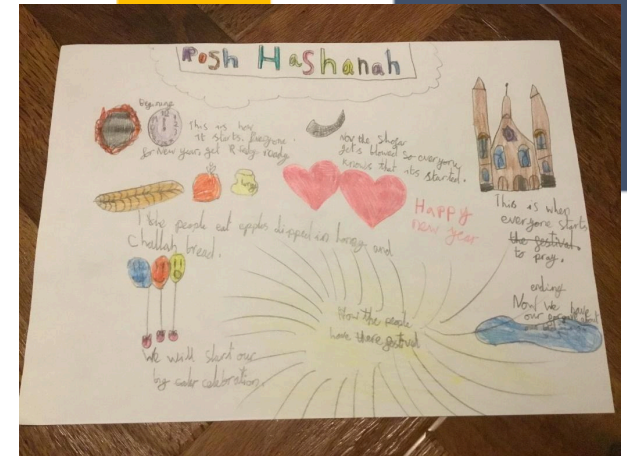 Rosh Hashanah
Beginning
This is how
it starts. Everyone
for New year, get ready
Now the Shofar
gets blowed so everyone
knows that its started.
honey
Happy
new year
This is when
everyone starts
the festival.
to pray.
the people eat apples dipped in honey and
challah bread.
ending
Now we have
our
How the people
have there festival
We will start our
by calebration.